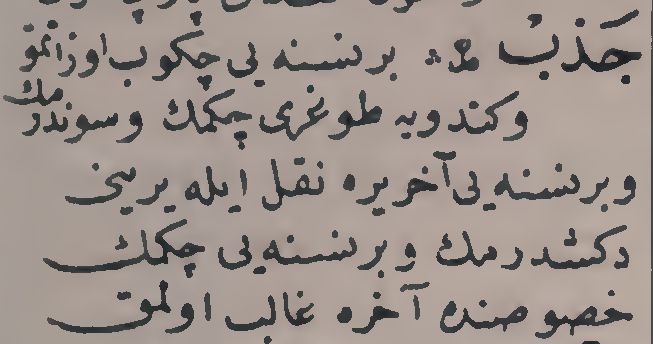 جَذْبْ مص بر نسنه یی چکوب اوزانمق
وکندویه طوغری چکمك وسوندرمك
وبر نسنه یی آخر یره نقل ایله یرینی
دکشدرمك وبر نسنه یی چکمك
خصوصنده آخره غالب اولمق